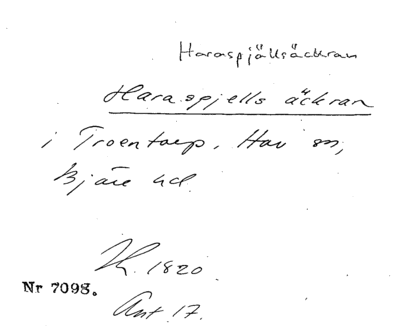 Haraspjällsäckran
Haraspjells äckran
i Troentorp, Hov sn,
Bjäre hd.
1820.
Nr 7098.
Ant. 17.